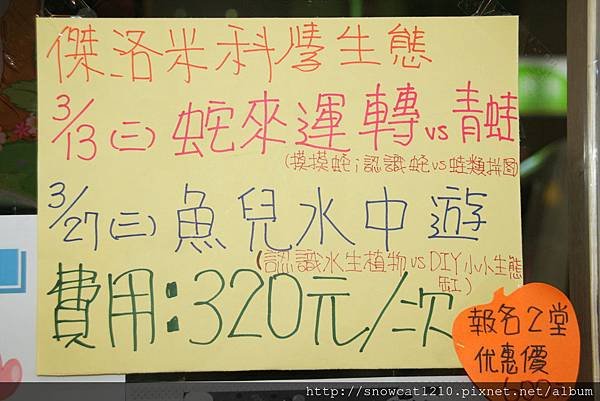 傑洛米科學生態
3/13(三) 蛇來運轉vs青蛙
(摸摸蛇;認識蛇vs蛙類拼图)
3/27(三) 魚兒水中遊
(認識水生植物vsDIY小小生態
缸)
費用:320元/次
報名2堂
优惠價
http://snowcat1210.pixnet.net/album